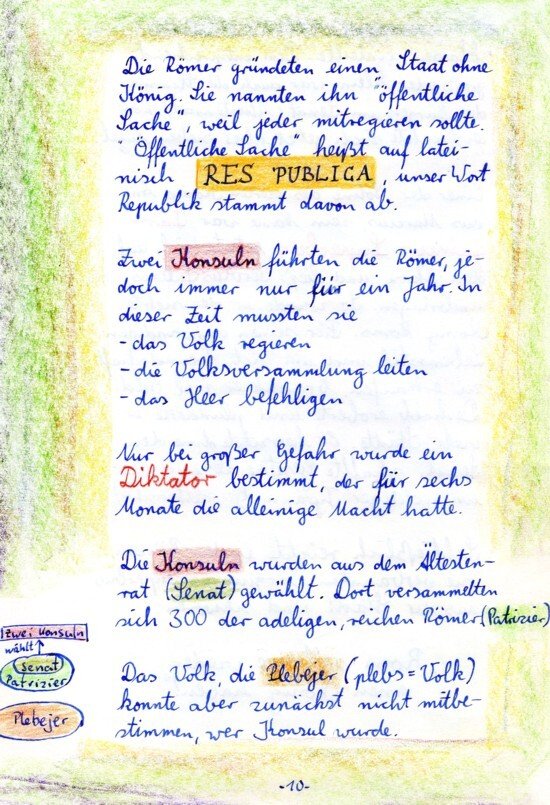 Die Römer gründeten einen Staat ohne
König. Sie nannten ihn "öffentliche
Sache", weil jeder mitregieren sollte.
"Öffentliche Sache" heißt auf latei-
nisch RES PUBLICA, unser Wort
Republik stammt davon ab.
Zwei Konsuln führten die Römer, je-
doch immer nur für ein Jahr. In
dieser Zeit mussten sie
- das Volk regieren
- die Volksversammlung leiten
- das Heer befehligen
Nur bei großer Gefahr wurde ein
Diktator bestimmt, der für sechs
Monate die alleinige Macht hatte.
Die Konsuln wurden aus dem Ältesten-
rat (Senat) gewählt. Dort versammelten
sich 300 der adeligen, reichen Römer (Patrizier)
Das Volk, die Plebejer (plebs = Volk)
konnte aber zunächst nicht mitbe-
stimmen, wer Konsul wurde.
zwei Konsuln
wählt
Senat
Patrizier
Plebejer
-10-